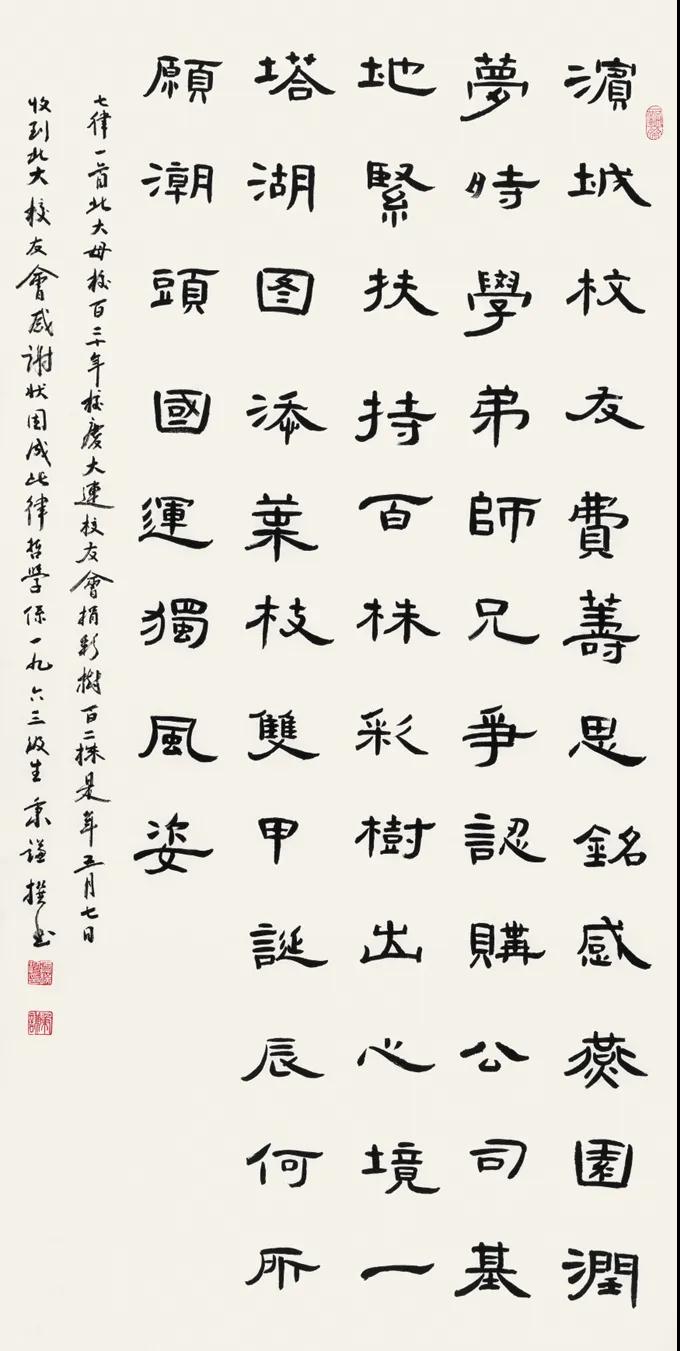 濱城校友費籌思銘感燕園潤
夢時學弟師兄爭認購公司基
地緊扶持百株彩樹出心境一
塔湖图添葉枝雙甲誕辰何所
願潮頭國運獨風姿
七律一首北大母校百二十年校慶大連校友會捐彩樹百二株是年五月七日
收到北大校友會感謝狀因成此律哲學係一九六三級生秉謙撰書